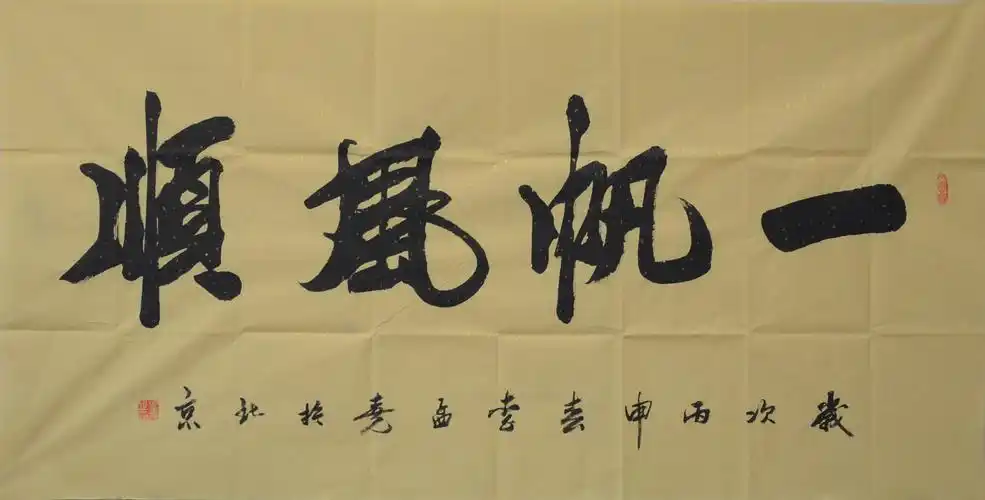 一帆風順
歲次丙申春李孟堯於北京